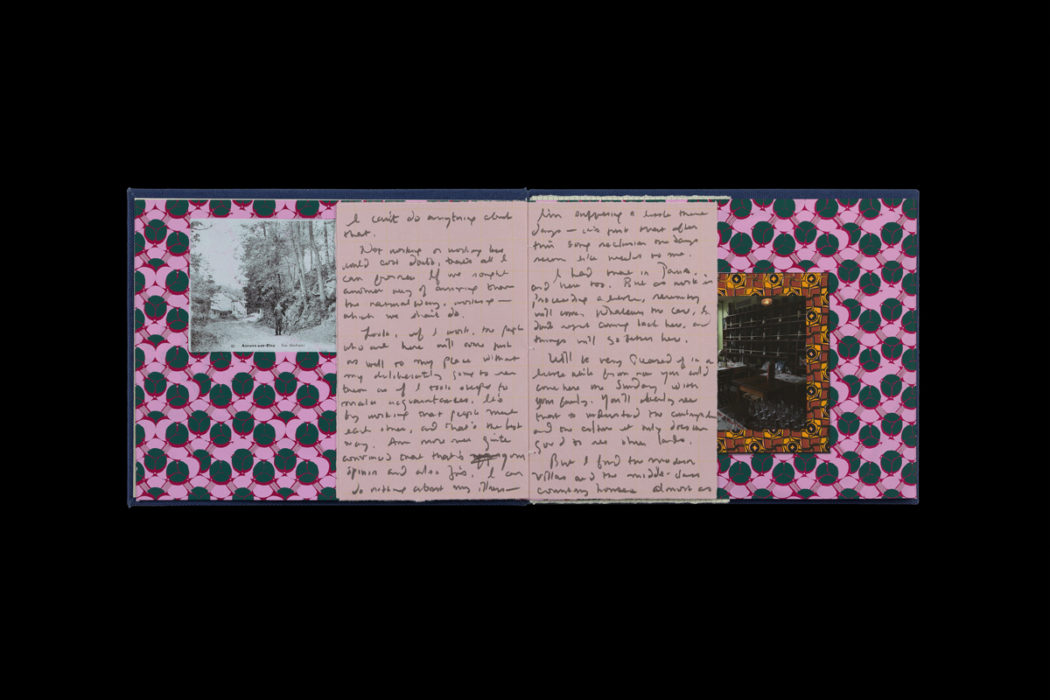 Auvers-sur-Oise
I can't do anything about
that.
Not working or working less
would cost double, that's all I
can foresee if we sought
another way of arriving than
the natural way, working —
which we shan't do.
Look, if I work, the people
who are here will come just
as well to my place without
my deliberately going to see
them as if I took steps to
make acquaintances. It's
by working that people meet
each other, and that's the best
way. Am more over quite
convinced that that is your
opinion and also Jo's. I can
do nothing about my illness—
I'm suffering a little these
days — it's just that after
this long seclusion the days
seem like weeks to me.
I had that in Paris..
and here too. But as work is
proceeding a little, serenity
will come. Whatever the case, I
don't regret coming back here, and
things will go better here.
Will be very pleased if in a
little while from now you could
come here one Sunday with
your family. You'll already see
that to understand the countryside
and the culture it only does
good to see other lands.
But I find the modern
villas and the middle-class
country houses almost as